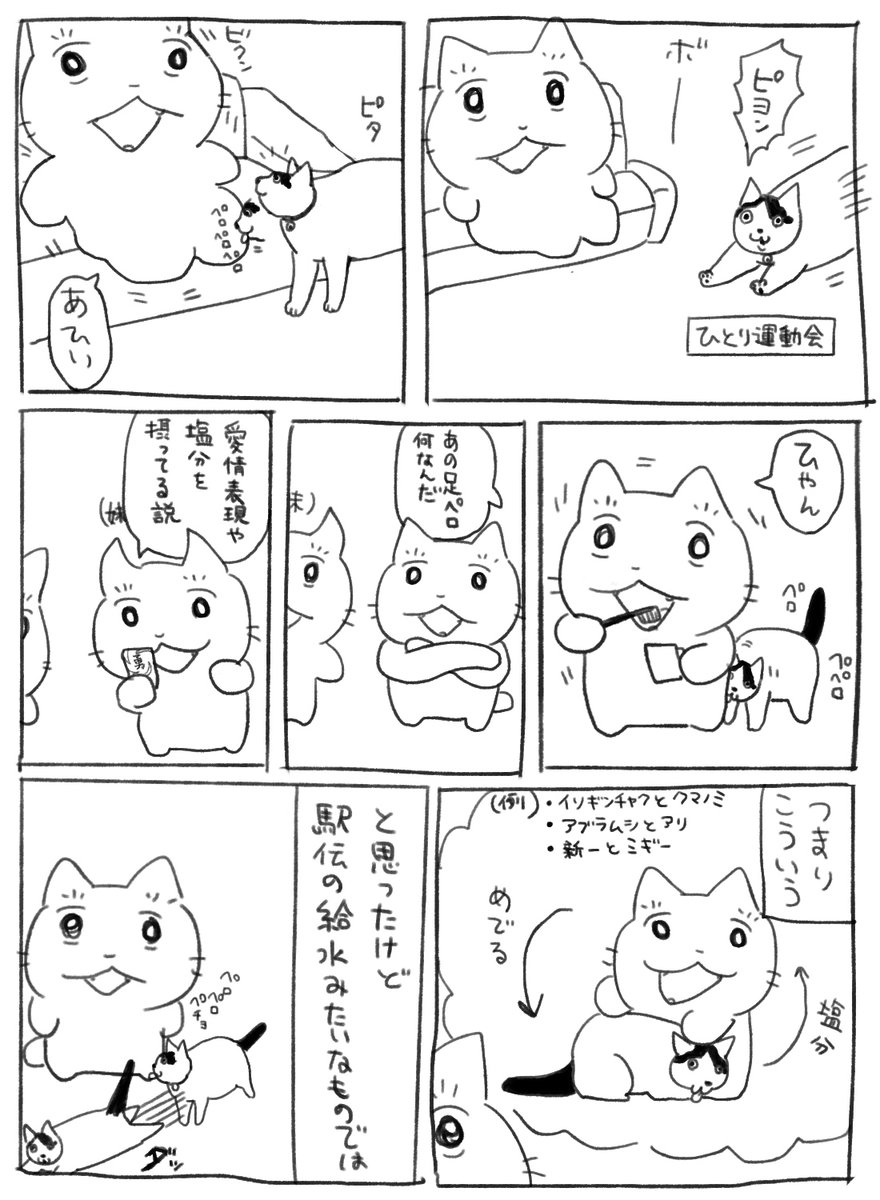 ボー
ピョン
ひとり運動会
ビクン
ピタ
ペロペロペロ
あひぃ
ひやん
ペロ
ペペロ
あの足ペロ
何なんだ
妹)
愛情表現や
塩分を
摂ってる説
(妹
つまり
こういう
(例)・イソギンチャクとクマノミ
・アブラムシとアリ
・新一とミギー
めでる
塩分
と思ったけど
駅伝の給水みたいなものでは
ペロペロペチョ
ダッ